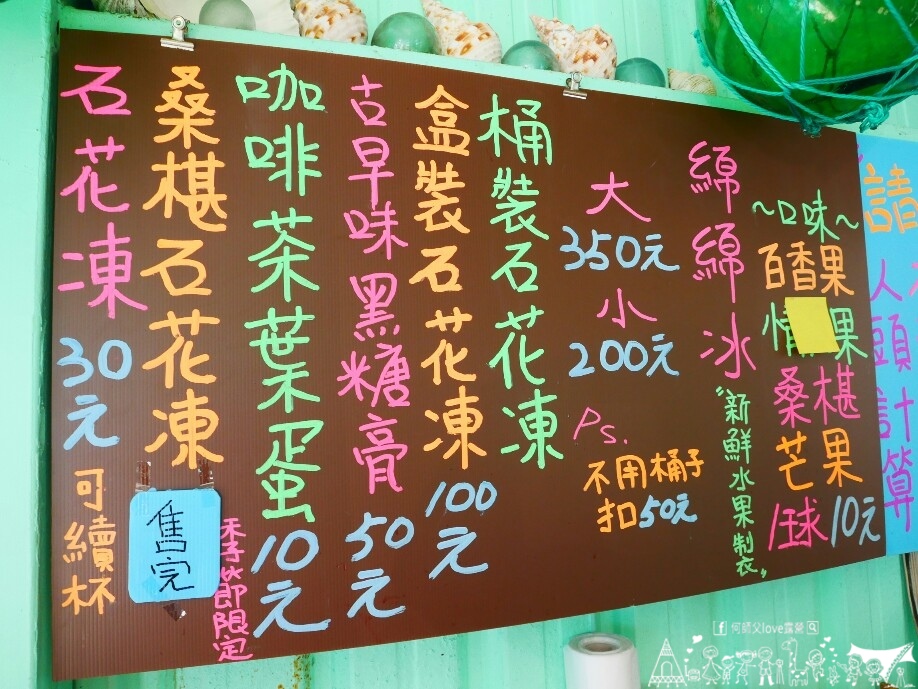 石花凍 30元 可續杯
桑椹石花凍
售完
季節限定
咖啡茶葉蛋 10元
古早味黑糖膏 50元
盒裝石花凍 100元
桶裝石花凍
大
350元
小
200元
Ps.
不用桶子
扣50元
綿綿冰
"新鮮水果製"
~口味~
百香果
果
桑椹
芒果
1球10元
請
人頭計算
何師父love露營